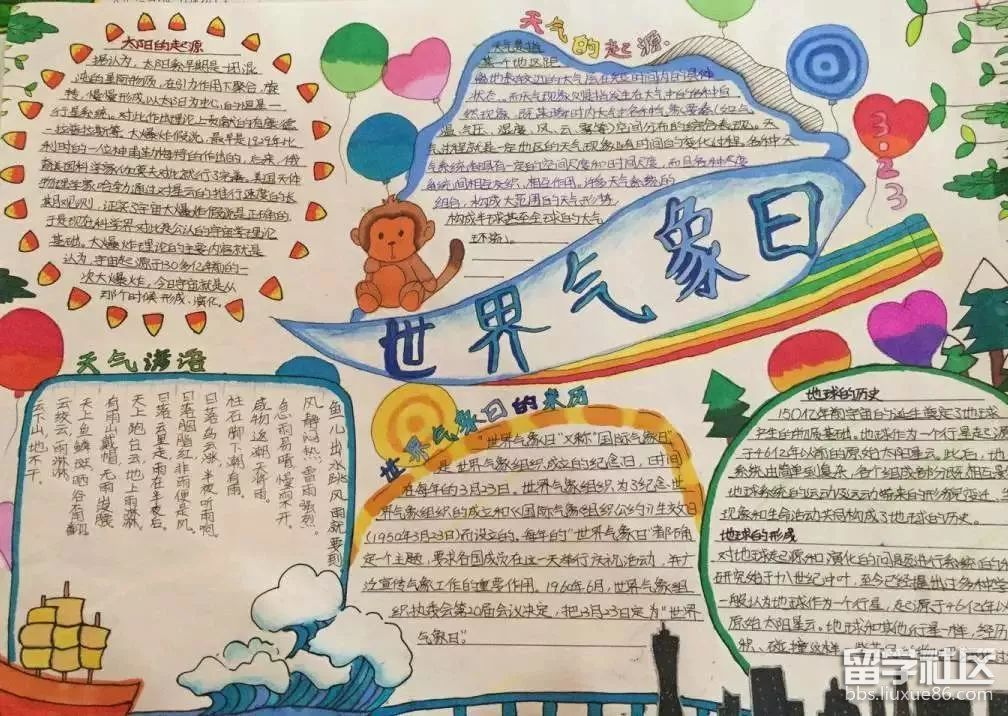 太阳的起源
据认为，太阳系早期是一团混
沌的星际物质，在引力作用下聚合，旋
转，慢慢形成以太阳为中心，自外围是一
行星系统。
大爆炸假说，最早是1929年比
物理学家哈勃通过对星云的推行速度的长
期观测，证实了宇宙大爆炸假说是正确的，
于是现在科学界对此是公认的宇宙学理论
基础。大爆炸理论的主要内容就是
认为，宇宙起源于130多亿年前的一
次大爆炸，今日宇宙就是从
那个时候形成、演化。
天气的起源
某一个地区距
离地表较近的大气层在短时间内的具体
状态。而天气现象则是指发生在大气中的各种自
然现象，即某瞬时内大气中各种气象要素（如气
温、气压、湿度、风、云、雾等）空间分布的综合表现。天
气过程就是一定地区的天气现象随时间的变化过程。各种天
气系统都具有一定的空间尺度和时间尺度，而且各种尺度
系统间相互交织、相互作用。许多天气系统的
组合，构成大范围的天气形势，
构成半球甚至全球的大气
环流。
3.23
世界气象日
天气谚语
鱼儿出水跳，风雨就要到
风静闷热，雷雨强烈。
急雨易晴，慢雨不开。
咸物返潮天将雨。
柱石脚下潮有雨。
日落乌云涨，半夜听雨响。
日落胭脂红，非雨便是风。
日落云里走，雨在半夜后。
天上跑台云，地上雨淋淋。
有雨山戴帽，无雨山没腰
天上鱼鳞斑，晒谷不用翻
云绞云，雨淋淋。
云下山，地不干。
世界气象日的来历
“世界气象日”又称“国际气象日”，
是世界气象组织成立的纪念日，时间
在每年的3月23日。世界气象组织为了纪念世
界气象组织的成立和《国际气象组织公约》生效日
（1950年3月23日）而设立的。每年的“世界气象日”都确
定一个主题，要求各国成员在这一天举行庆祝活动，并广
泛宣传气象工作的重要作用。1960年6月，世界气象组
织执委会第20届会议决定，把3月23日定为“世界
气象日”。
地球的历史
150亿年前宇宙的诞生奠定了地球
产生的物质基础。地球作为一个行星起源
于46亿年以前的原始太阳星云。此后，地
系统由简单到复杂，各个组成部分既相互
地球系统的运动及运动带来的形势变迁，
现象和生命活动共同构成了地球的历史。
地球的形成
对地球起源和演化的问题进行系统的
研究始于十八世纪中叶，至今已经提出过多种学
一般认为地球作为一个行星，起源于46亿年
原始太阳星云。地球和其他行星一样，经历
积、碰撞
留学社区
bbs.liuxue86.com